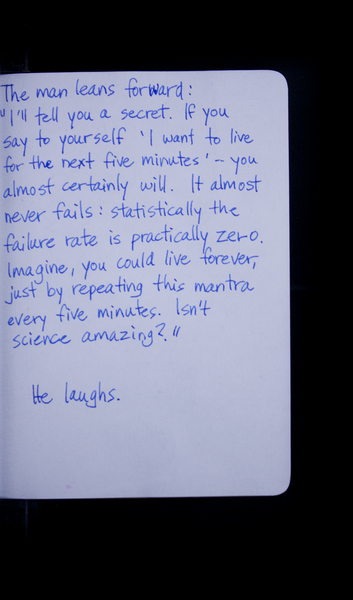 The man leans forward:
"I'll tell you a secret. If you
say to yourself 'I want to live
for the next five minutes' – you
almost certainly will. It almost
never fails: statistically the
failure rate is practically zero.
Imagine, you could live forever,
just by repeating this mantra
every five minutes. Isn't
science amazing?"
He laughs.